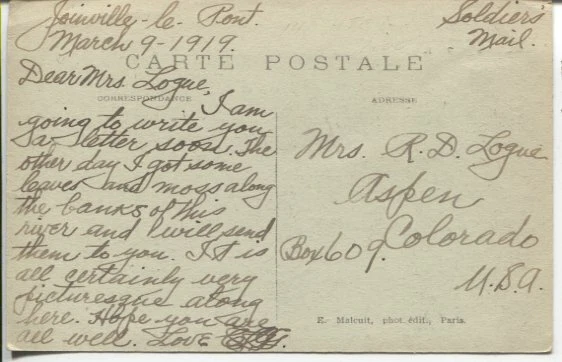 Joinville-le-Pont.
March 9-1919.
Soldier's
Mail.
CARTE POSTALE
Dear Mrs. Logue,
CORRESPONDANCE
I am
going to write you
a letter soon. The
other day I got some
leaves and moss along
the banks of this
river and I will send
them to you. It is
all certainly very
picturesque along
here. Hope you are
all well. Love
ADRESSE
Mrs. R. D. Logue
Aspen
Colorado
Box 609.
U.S.A.
E. Malcuit, phot. édit., Paris.